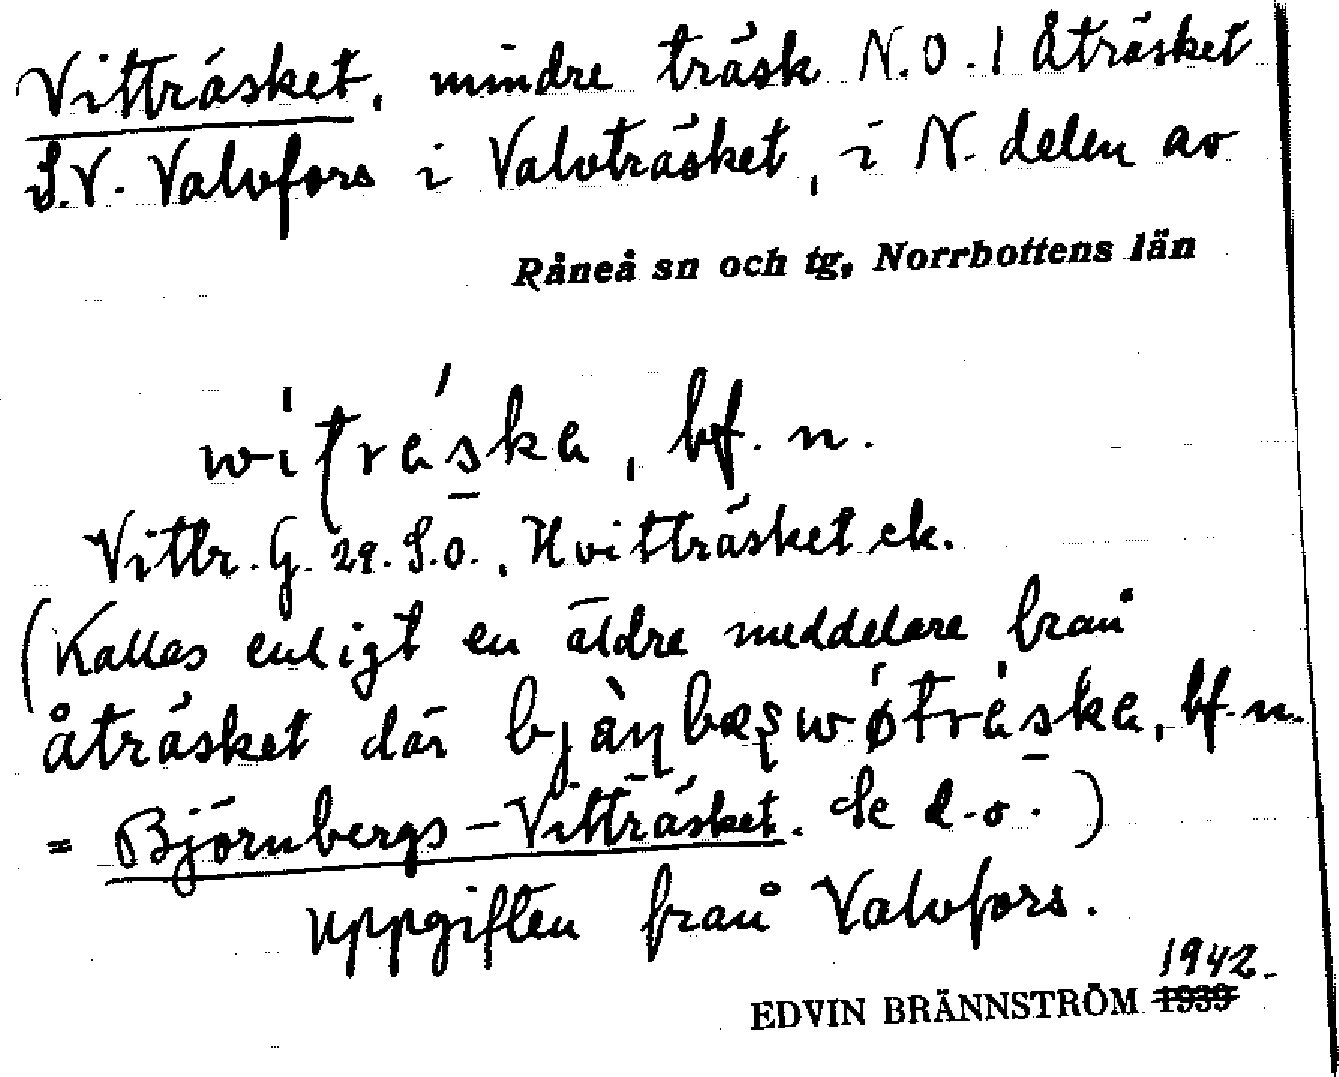 Vitträsket, mindre träsk N.O. I Åträsket
S.V. Valvfors i Valvträsket, i N. delen av
Råneå sn och tg, Norrbottens län
witráska, bf. n.
Vittr. G. 29. S.O., Hvitträsket ek.
(Kallas enligt en äldre meddelare från
Åträsket där bjànbæșwǿtráska, bf. n.
= Björnbergs-Vitträsket. Se d.o.)
Uppgiften från Valvfors.
1942.
EDVIN BRÄNNSTRÖM 1939